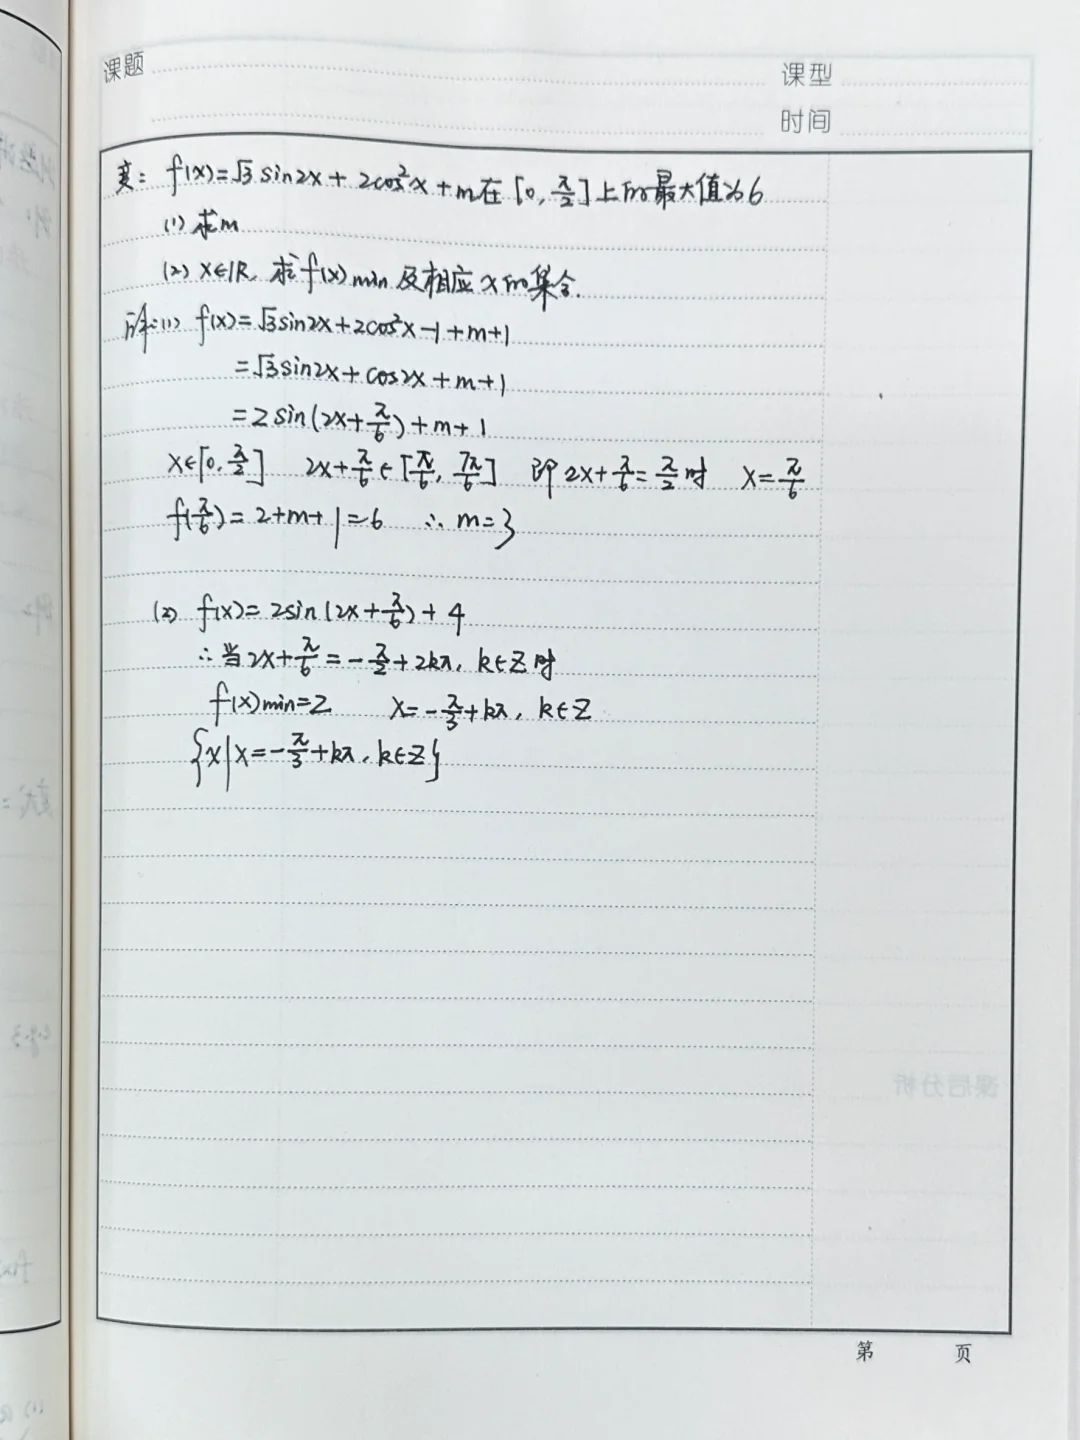 课题
课型
时间
变: f(x)=√3sin2x+2cos²x+m在[0,π/2]上的最大值为6
(1) 求m
(2) x∈R, 求f(x)min及相应x的集合.
解:(1) f(x)=√3sin2x+2cos²x-1+m+1
=√3sin2x+cos2x+m+1
=2sin(2x+π/6)+m+1
x∈[0,π/2] 2x+π/6∈[π/6,7π/6] 即2x+π/6=π/2时 x=π/6
f(π/6)=2+m+1=6 ∴m=3
(2) f(x)=2sin(2x+π/6)+4
∴当2x+π/6=-π/2+2kπ, k∈Z时
f(x)min=2 x=-π/3+kπ, k∈Z
{x|x=-π/3+kπ, k∈Z}
课后分析
第 页